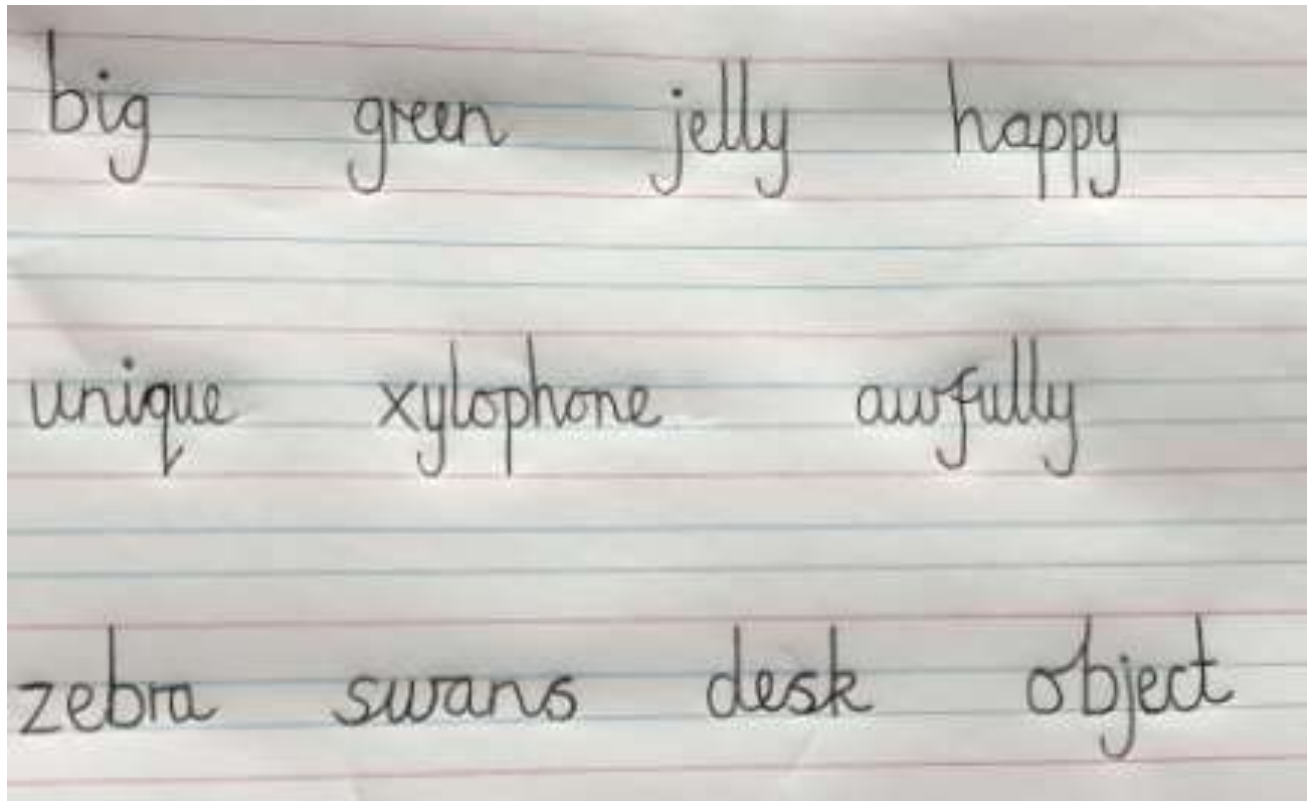 big green jelly happy
unique xylophone awfully
zebra swans desk object